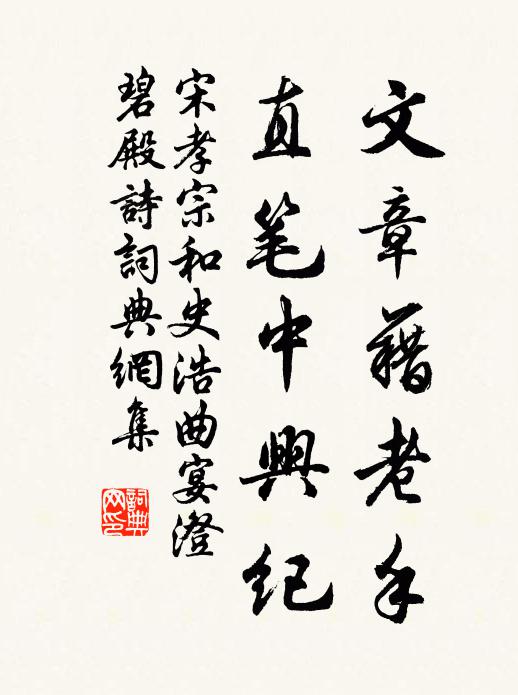 文章藉老手
直笔中興纪
宋孝宗和史浩曲宴澄
碧殿詩詞典網集
詞典网印